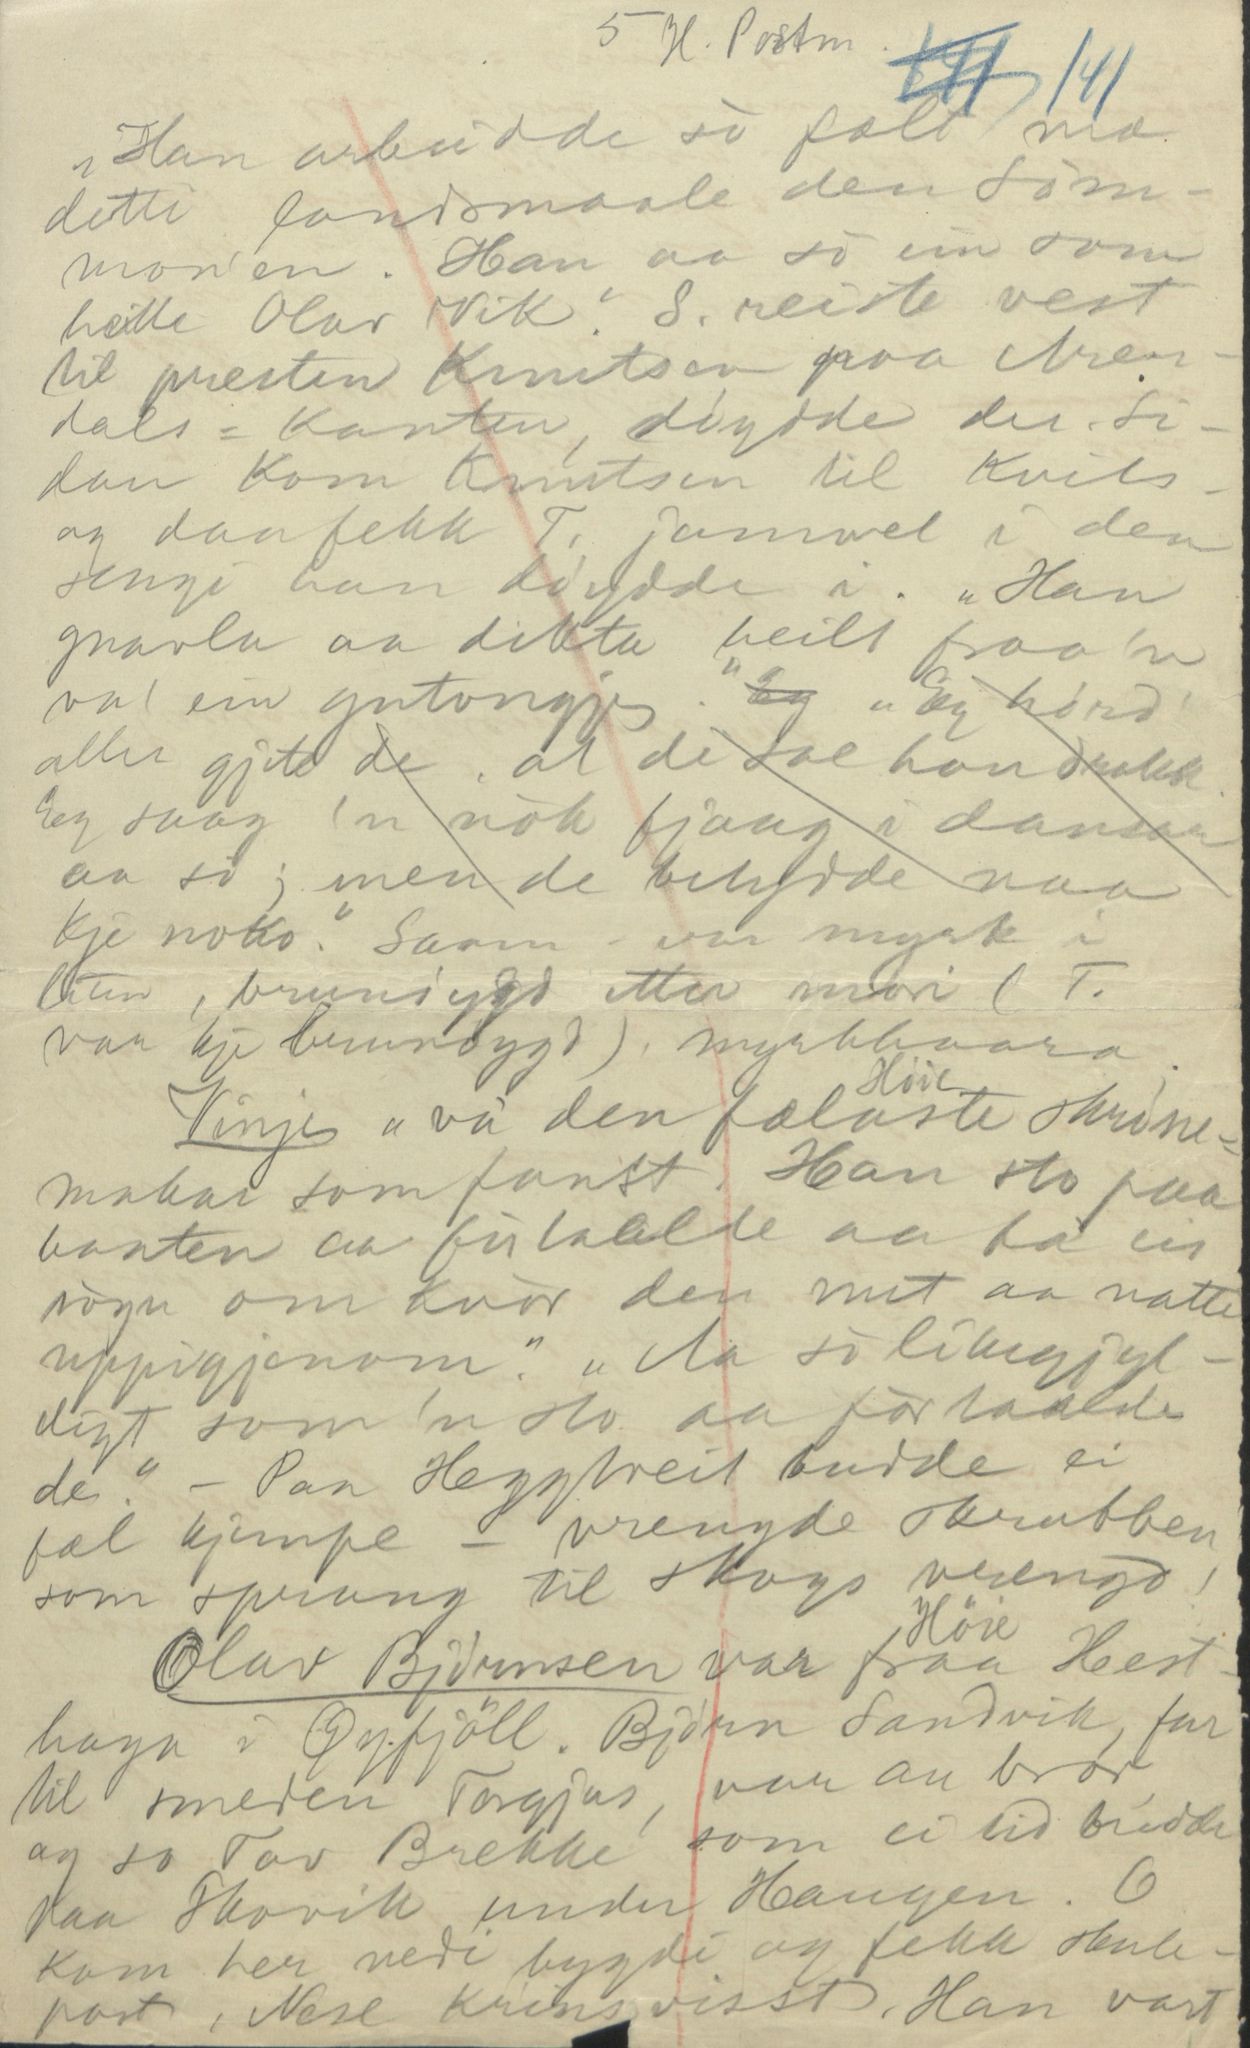 5 H. Postm. 141
„Han arbeidde so fælt mæ
detti landsmaale den Söm-
mor'en. Han aa so ein som
heitte Olav Vik." S. reiste vest
til presten Knutsen paa Aren-
dals-kanten, döydde der. Si-
dan kom Knutsen til Kvits-
og daa fekk T. jamvel i den
sengi han döydde i. „Han
gnavla aa dikta heilt fraa 'n
va' ein gutongje." „Eg hörd'
aller gjete de, at de sae han drakk.
Eg saag 'n nok fjaag i dansar
aa so; men de betydde naa
kje noko." Saam- var myrk i
liten, brunöygd etter mori (T.
var kje brunöygd), myrkhaara.
Höie
Vinje „va den fælaste skröne-
makar som fanst. Han sto paa
kanten aa fortalde aa ha ei
sogu om kvör den nut aa natte
uppigjenom." „Aa so likegjyl-
digt som 'n sto aa fortaalde
de." – Paa Heggtveit budde ei
fæl kjempe – vrengde skrubben
som sprang til skogs vrengd!
Höie
Olav Björnsen var fraa Hest-
haga i Öyfjöll. Björn Sandvik, far
til smeden Torgjus, var au bror
og so Tov Brekke som ei tid budde
paa Skovik under Haugen. O
kom her nedi bygdi og fekk skule-
post, Nese krins visst. Han vart